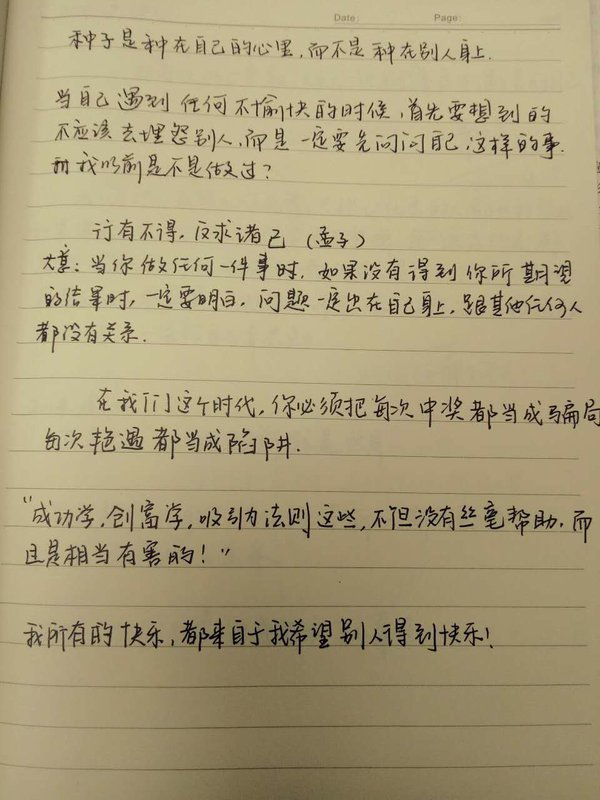 Date: Page:
种子是种在自己的心里,而不是种在别人身上.
当自己遇到任何不愉快的时候,首先要想到的
不应该去埋怨别人,而是一定要先问问自己,这样的事.
我以前是不是做过?
讨有不得,反求诸己(孟子)
大意:当你做任何一件事时,如果没有得到你所期望
的结果时,一定要明白,问题一定出在自己身上,跟其他任何人
都没有关系.
在我们这个时代,你必须把每次中奖都当成骗局
每次艳遇都当成陷阱.
"成功学,创富学,吸引力法则这些,不但没有丝毫帮助.而
且是相当有害的!"
我所有的快乐,都来自于我希望别人得到快乐!